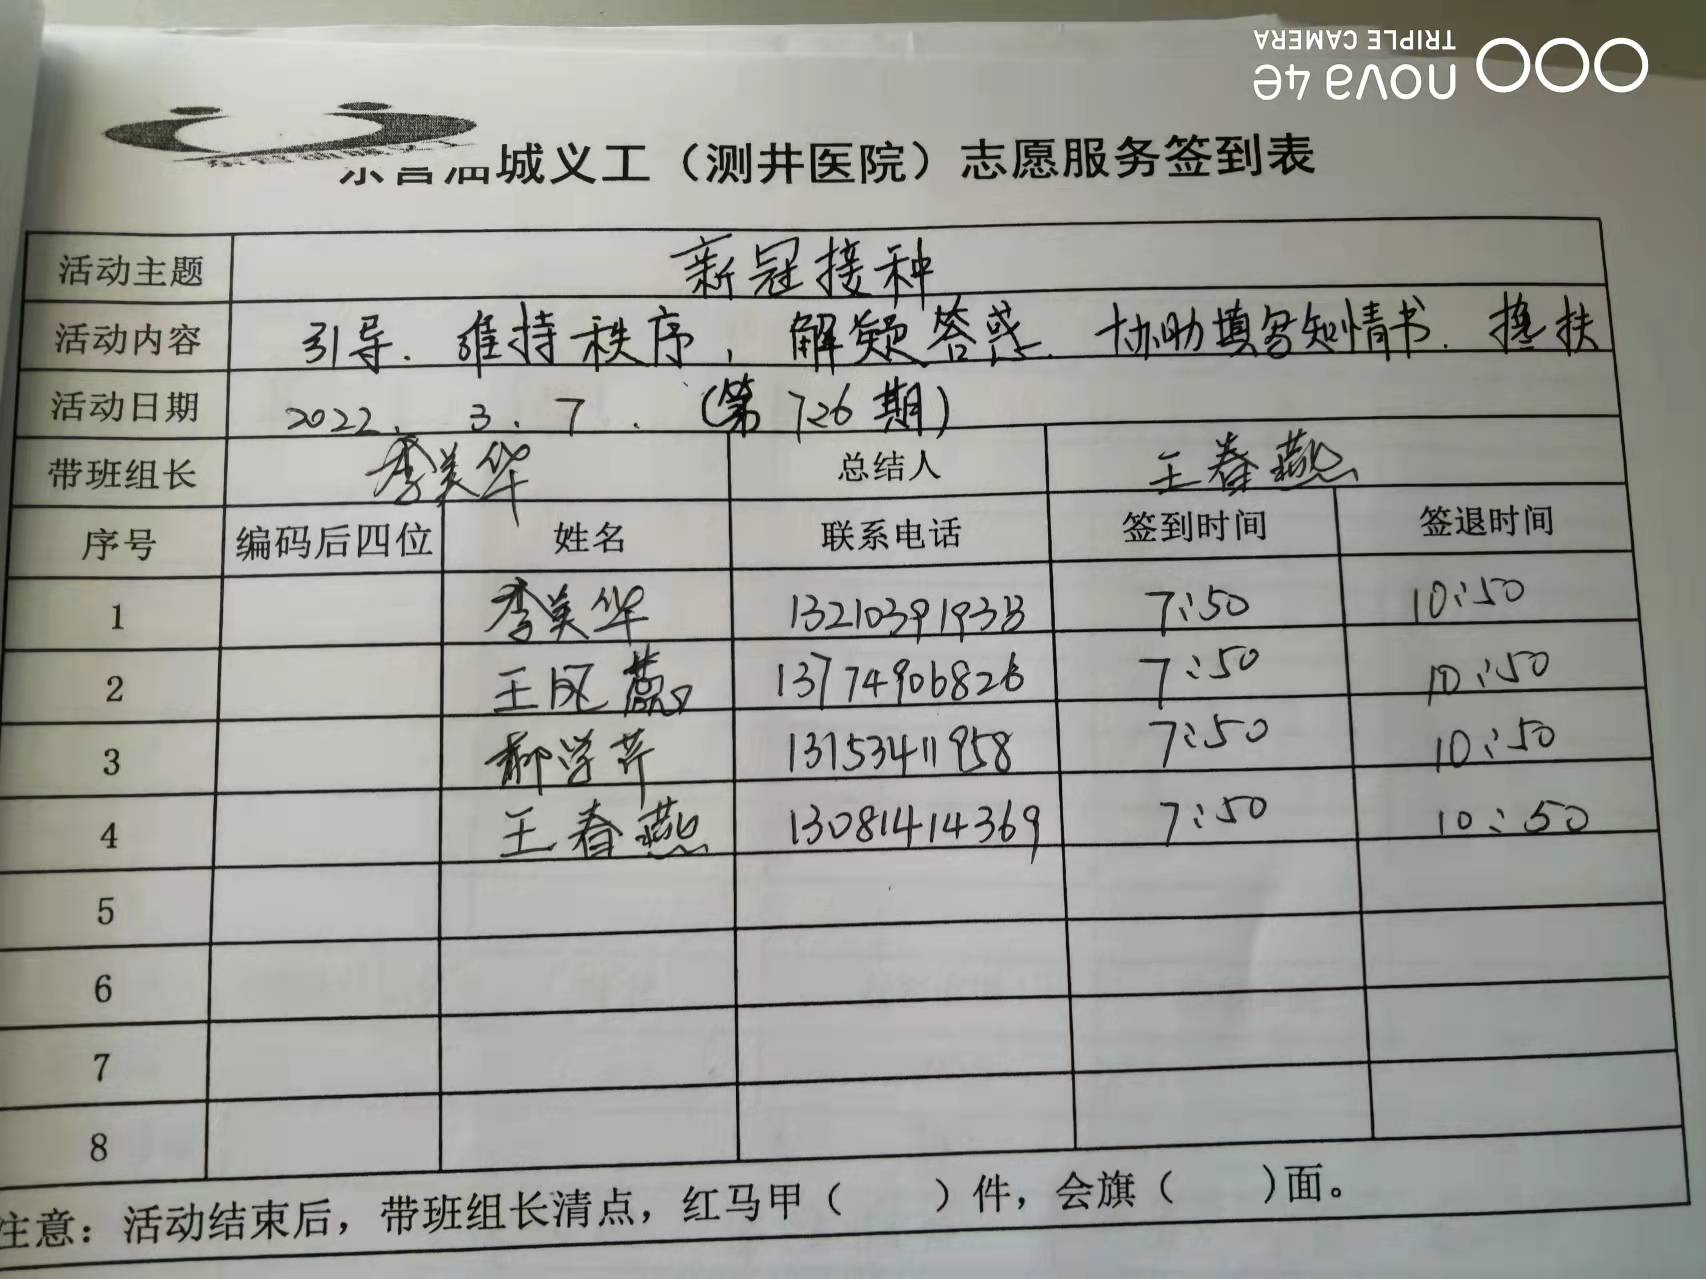 nova 4e
TRIPLE CAMERA
东营油城义工（测井医院）志愿服务签到表
活动主题 新冠接种
活动内容 引导. 维持秩序, 解疑答惑. 协助填写知情书. 搀扶
活动日期 2022. 3. 7. (第726期)
带班组长 李美华 总结人 王春燕
序号 编码后四位 姓名 联系电话 签到时间 签退时间
1 李美华 13210391933 7:50 10:50
2 王凤燕 13774906826 7:50 10:50
3 柳学芹 13153411958 7:50 10:50
4 王春燕 13081414369 7:50 10:50
5
6
7
8
注意：活动结束后，带班组长清点，红马甲（ ）件，会旗（ ）面。